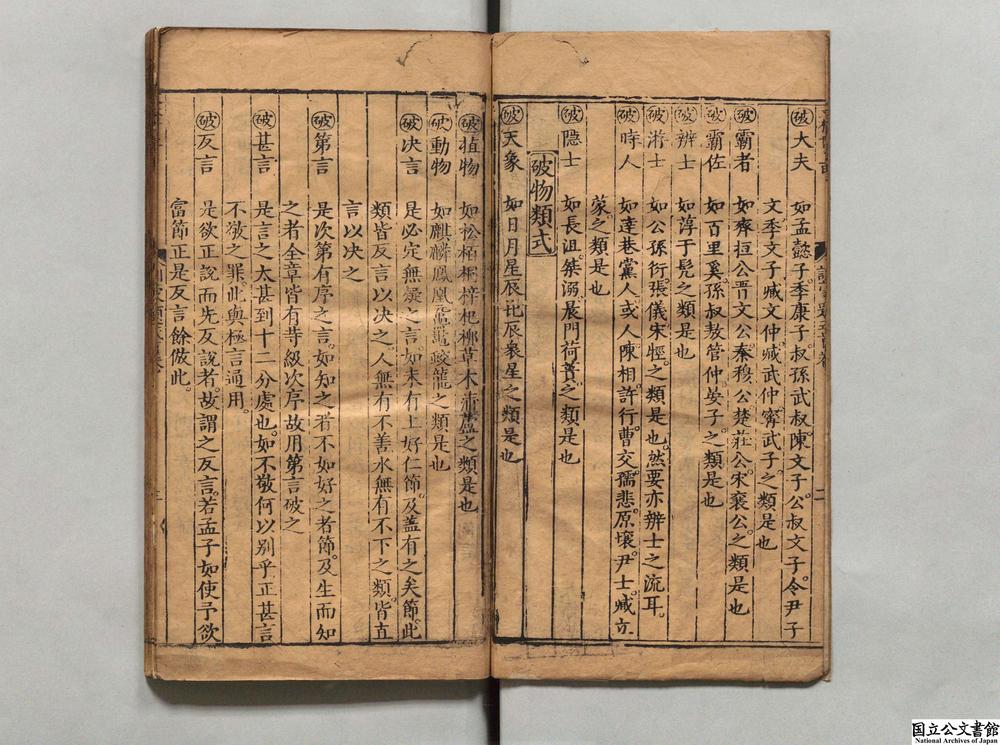 破大夫 如孟懿子。季康子。叔孫武叔。陳文子。公叔文子。令尹子
文。季文子。臧文仲。臧武仲。甯武子。之類是也
破霸者 如齊桓公。晋文公。秦穆公。楚莊公。宋襄公。之類是也
破霸佐 如百里奚。孫叔敖。管仲。晏子。之類是也
破辨士 如淳于髡之類是也
破游士 如公孫衍。張儀。宋牼。之類是也。然要亦辨士之流耳。
破時人 如達巷黨人。或人。陳相。許行。曹交。孺悲。原壤。尹士。臧立
蒙之類是也
破隱士 如長沮。桀溺。晨門。荷蕢之類是也
破物類式
破天象 如日月星辰北辰衆星之類是也
破植物 如松栢桐梓杞柳草木蒲蘆之類是也
破動物 如麒麟鳳凰黿鼉蛟龍之類是也
破决言 是必定無疑之言。如未有上好仁節。及蓋有之矣節。此
類皆反言以决之人無有不善水無有不下之類。皆直
言以决之
破第言 是次第有序之言。如知之者不如好之者節。及生而知
之者全章皆有等級次序故用第言破之
破甚言 是言之太甚到十二分處也。如不敬何以別乎正甚言
不敬之罪。此與極言通用。
破反言 是欲正說而先反說者。故謂之反言。若孟子如使予欲
富節正是反言餘倣此。
二
三
国立公文書館
National Archives of Japan